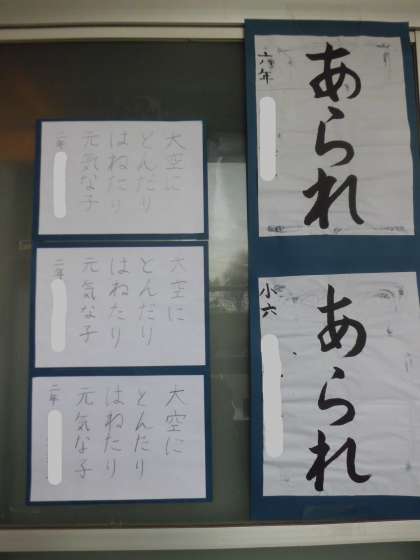 あられ
六年
あられ
小六
大空に
とんだり
はねたり
元気な子
二年
大空に
とんだり
はねたり
元気な子
二年
大空に
とんだり
はねたり
元気な子
二年